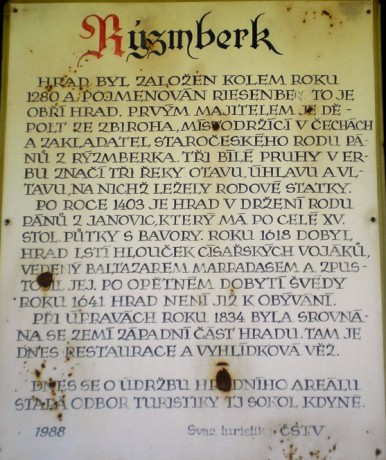 Rýzmberk
HRAD BYL ZALOŽEN KOLEM ROKU
1280 A POJMENOVÁN RIESENBE TO JE
OBŘÍ HRAD. PRVÝM MAJITELEM JE DĚ-
POLT ZE ZBIROHA, MÍSTODRŽÍCÍ V ČECHÁCH
A ZAKLADATEL STAROČESKÉHO RODU PÁ-
NŮ Z RÝZMBERKA. TŘI BÍLÉ PRUHY V ER-
BU ZNAČÍ TŘI ŘEKY OTAVU, ÚHLAVU A VL-
TAVU, NA NICHŽ LEŽELY RODOVÉ STATKY.
PO ROCE 1403 JE HRAD V DRŽENÍ RODU
PÁNŮ Z JANOVIC, KTERÝ MÁ PO CELÉ XV.
STOL. PŮTKY S BAVORY. ROKU 1618 DOBYL
HRAD LSTÍ HLOUČEK CÍSAŘSKÝCH VOJÁKŮ,
VEDENÝ BALTAZAREM MARRADASEM A ZPUS-
TOŠIL JEJ. PO OPĚTNÉM DOBYTÍ ŠVÉDY
ROKU 1641 HRAD NENÍ JIŽ K OBÝVÁNÍ.
PŘI ÚPRAVÁCH ROKU 1834 BYLA SROVNÁ-
NA SE ZEMÍ ZÁPADNÍ ČÁST HRADU. TAM JE
DNES RESTAURACE A VYHLÍDKOVÁ VĚŽ.
DNES SE O ÚDRŽBU HRADNÍHO AREÁLU
STARÁ ODBOR TURISTIKY TJ SOKOL KDYNĚ.
1988 Svaz turistiky ČSTV